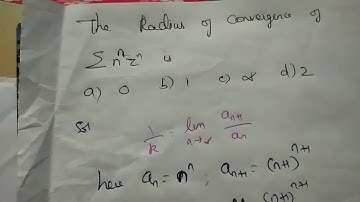 The Radius of Convergence of
∑ nⁿ zⁿ is
a) 0 b) 1 c) ∝ d) 2
Sol
1/R = lim n→∝ aₙ₊₁/aₙ
here aₙ = nⁿ ; aₙ₊₁ = (n+1)ⁿ⁺¹
(n+1)ⁿ⁺¹